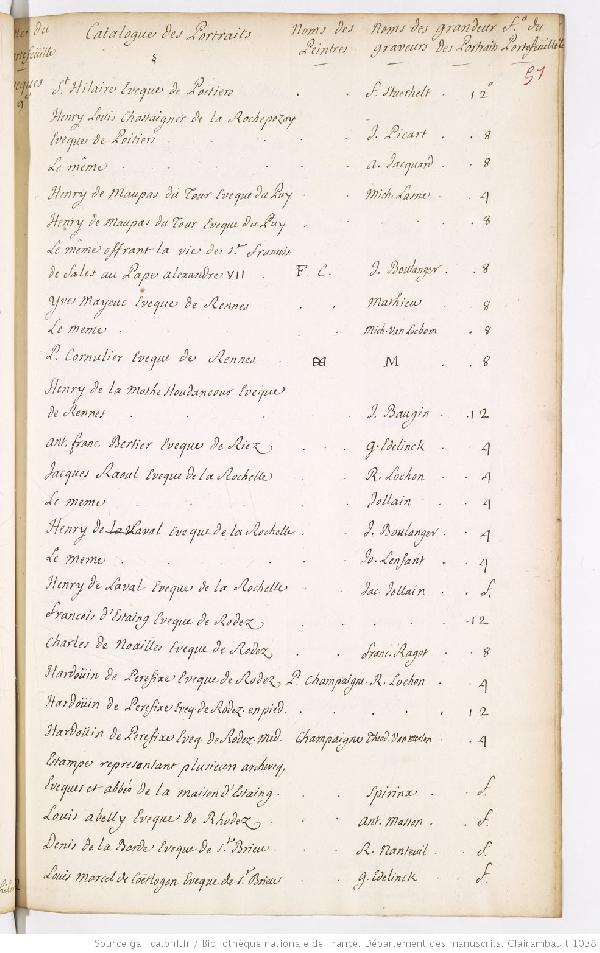 Catalogue des Portraits Noms des Noms des grandeur f.º du
Peintres graveurs des Portraits Portefeuille
51
St. Hilaire Eveque de Poitiers . . 12º
Henry Louis Chastaigner de la Rochepozay
Eveque de Poitiers . . J. Picart . . 8
Le même . . A. Jacquard . . 8
Henry de Maupas du Tour Eveque du Puy . . Mich. Lasne . . 4
Henry de Maupas du Tour Eveque du Puy . . . . 8
Le même offrant la vie de St. François
de Sales au Pape Alexandre VII . F C. J. Boulanger . . 8
Yves Mayeuc Eveque de Rennes . . Mathieu . . 8
Le meme . . Mich. Van Lochom . . 8
P. Cornulier Eveque de Rennes . . M . . 8
Henry de la Mothe Houdancour Eveque
de Rennes . . J. Baugin . . 12
Ant. franc. Bertier Eveque de Riez . . G. Edelinck . . 4
Jacques Raoul Eveque de la Rochelle . . R. Lochon . . 4
Le meme . . Jollain . . 4
Henry de Laval Eveque de la Rochelle . . J. Boulanger . . 4
Le meme . . Jo. Lenfant . . 4
Henry de Laval Eveque de la Rochelle . . Jac. Jollain . . f.
françois d'Estaing Eveque de Rodez . . . . 12
Charles de Noailles Eveque de Rodez . . franc. Ragot . . 8
Hardoüin de Perefixe Eveque de Rodez P. Champaigne R. Lochon . . 4
Hardoüin de Perefixe Eveq. de Rodez en pied . . . . 12
Hardoüin de Perefixe Eveq. de Rodez Med. Champaigne Theod. Van merlen . . 4
Estampe representant plusieurs archeveq.
Eveques et abbés de la maison d'Estaing . . Spirinx . . f.
Louis abelly Eveque de Rhodez . . Ant. Masson . . f.
Denis de la Borde Eveque de St. Brieu . . R. Nanteuil . . f.
Louis Marcel de Coetlogon Eveque de St. Brieu . . G. Edelinck . . f.
Source gallica.bnf.fr / Bibliothèque nationale de France. Département des manuscrits. Clairambault 1038